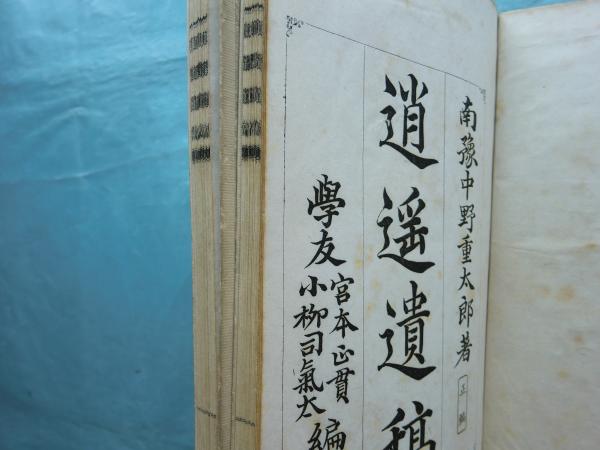 南豫中野重太郎著 正編
逍遥遺稿
學友 宮本正貫
小柳司氣太 編